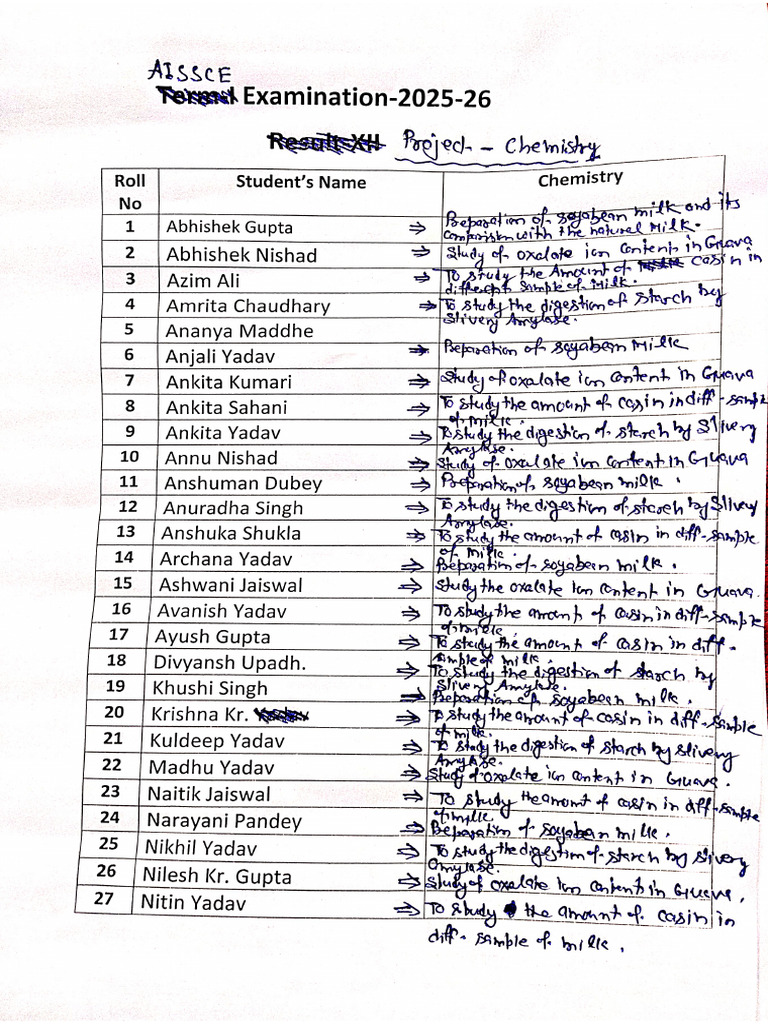 AISSCE
Examination-2025-26
Result XII Project - Chemistry
Roll No Student's Name Chemistry
1 Abhishek Gupta ⇒ Preparation of soyabean milk and its
comparision with the natural Milk.
2 Abhishek Nishad ⇒ Study of oxalate ion content in Guava
3 Azim Ali ⇒ To study the Amount of casin in
different sample of Milk.
4 Amrita Chaudhary ⇒ To study the digestion of starch by
Slivery Amylase.
5 Ananya Maddhe
6 Anjali Yadav ⇒ Preparation of soyabean Milk
7 Ankita Kumari ⇒ Study of oxalate ion content in Guava
8 Ankita Sahani ⇒ To study the amount of casin in diff-sample
of milk.
9 Ankita Yadav ⇒ To study the digestion of starch by Slivery
Amylase.
10 Annu Nishad ⇒ Study of oxalate ion content in Guava
11 Anshuman Dubey ⇒ Preparation of soyabean milk.
12 Anuradha Singh ⇒ To study the digestion of starch by Slivery
Amylase.
13 Anshuka Shukla ⇒ To study the amount of casin in diff-sample
of milk.
14 Archana Yadav ⇒ Preparation of soyabean milk.
15 Ashwani Jaiswal ⇒ Study the oxalate ion content in Guava.
16 Avanish Yadav ⇒ To study the amount of casin in diff-sample
of milk
17 Ayush Gupta ⇒ To study the amount of casin in diff-
sample of milk.
18 Divyansh Upadh. ⇒ To study the digestion of starch by
Slivery Amylase.
19 Khushi Singh ⇒ Preparation of soyabean milk.
20 Krishna Kr. ⇒ To study the amount of casin in diff-sample
of milk.
21 Kuldeep Yadav ⇒ To study the digestion of starch by slivery
Amylase.
22 Madhu Yadav ⇒ Study of oxalate ion content in Guava.
23 Naitik Jaiswal ⇒ To study the amount of casin in diff-sample
of milk
24 Narayani Pandey ⇒ Preparation of soyabean milk.
25 Nikhil Yadav ⇒ To study the digestion of starch by slivery
amylase.
26 Nilesh Kr. Gupta ⇒ Study of oxalate ion content in Guava.
27 Nitin Yadav ⇒ To study the amount of casin in
diff-sample of milk.